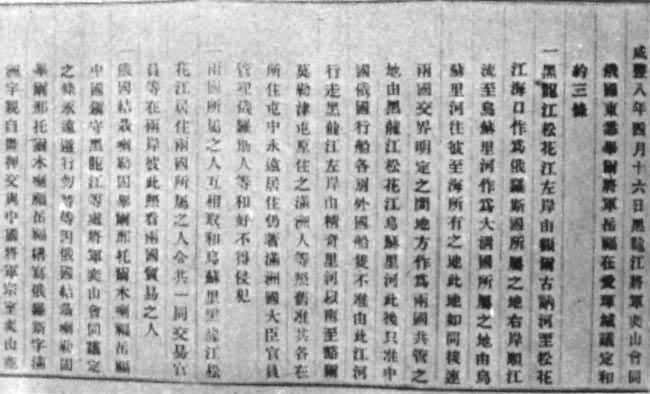 咸豐八年四月十六日黑龍江將軍奕山會同
俄國東悉畢爾將軍岳福在愛琿城議定和
約三條
一黑龍江松花江左岸由額爾古訥河至松花
江海口作為俄羅斯國所屬之地右岸順江
流至烏蘇里河作為大清國所屬之地由烏
蘇里河往彼至海所有之地此地如同接連
兩國交界明定之間地方作為兩國共管之
地由黑龍江松花江烏蘇里河此後只准中
國俄國行船各別外國船隻不准由此江河
行走黑龍江左岸由精奇里河以南至豁爾
莫勒津屯原住之滿洲人等照舊准其各在
所住屯中永遠居住仍著滿洲國大臣官員
管理俄羅斯人等和好不得侵犯
一兩國所屬之人互相取和烏蘇里黑龍江松
花江居住兩國所屬之人令其一同交易官
員等在兩岸彼此照看兩國貿易之人
一俄國結聶喇勒固畢爾那托爾木喇福岳福
中國鎮守黑龍江等處將軍奕山會同議定
之條永遠遵行勿替等因俄國結聶喇勒固
畢爾那托爾木喇福岳福繕寫俄羅斯字滿
洲字親自畫押交與中國將軍宗室奕山並